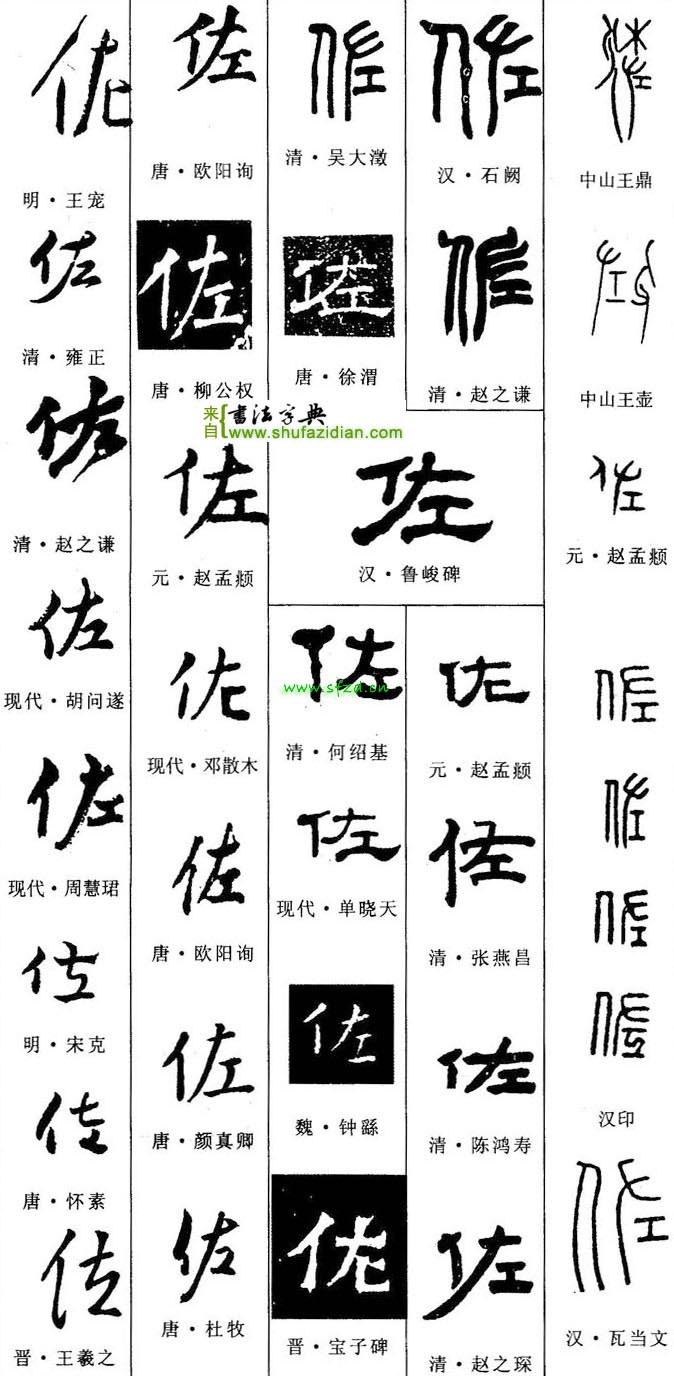 佐
明·王宠
佐
清·雍正
佐
清·赵之谦
佐
现代·胡问遂
佐
现代·周慧珺
佐
明·宋克
佐
唐·怀素
佐
晋·王羲之
佐
唐·欧阳询
佐
唐·柳公权
来自
书法字典
www.shufazidian.com
佐
元·赵孟頫
佐
现代·邓散木
佐
唐·欧阳询
佐
唐·颜真卿
佐
唐·杜牧
佐
清·吴大澂
佐
唐·徐渭
佐
汉·石阙
佐
清·赵之谦
佐
汉·鲁峻碑
佐
www.sfzd.cn
清·何绍基
佐
现代·单晓天
佐
魏·钟繇
佐
晋·宝子碑
佐
元·赵孟頫
佐
清·张燕昌
佐
清·陈鸿寿
佐
清·赵之琛
中山王鼎
中山王壶
佐
元·赵孟頫
佐
佐
佐
佐
汉印
佐
汉·瓦当文